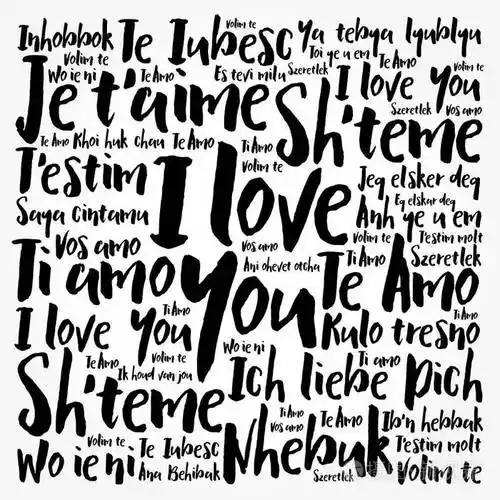 Inhobbok Te Iubesc Ya tebya lyublyu
Volim te Volim te Toi ye u em Te Amo
Wo ie ni Te Amo Es tevi milu Szeretlek I love you Volim te
Je t'aime Sh'teme Szeretlek Vos amo
Te Amo Khoi huk chau Te Amo Ti Amo
T'estim I love Volim te Jeg elsker deg
Eg elskar deg
Saya cintamu Anh ye u em
Vos amo Vos amo Volim te T'estim molt
Ti amo You Ani ohevet otcha Ti Amo Szeretlek
Te Amo
I love You Ti Amo Kulo tresno Ti Amo
Te Amo Volim te Wo ie ni Ti amo
Sh'teme Ik houd van jou Ich liebe Dich
Ti Amo Te Amo Ib'n hebbak
Volim te Te Iubesc Vos amo Nhebuk T'estim molt
Wo ie ni Ana Behibak Szeretlek Volim te